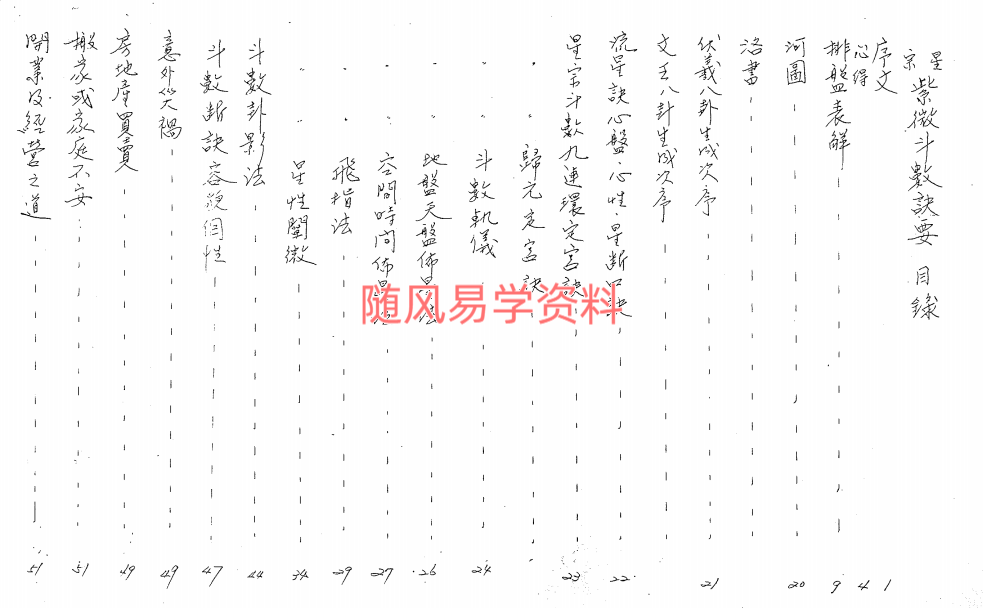 星宗 紫微斗數訣要 目錄
序文 1
心得 4
排盤表解 9
河圖 20
洛書
伏羲八卦生成次序 21
文王八卦生成次序
流星訣心盤·心性·星斷口訣 22
星宗斗數九連環定宮訣 23
〃 〃 歸元定宮訣
〃 〃 斗數軌儀 24
〃 〃 地盤天盤佈星法 26
〃 〃 空間時間佈星法 27
〃 〃 飛指法 29
〃 〃 星性闡微 34
斗數卦影法 44
斗數斷訣容貌個性 47
意外災禍 49
房地產買賣 49
搬家或家庭不安 51
開業及經營之道 51
随风易学资料